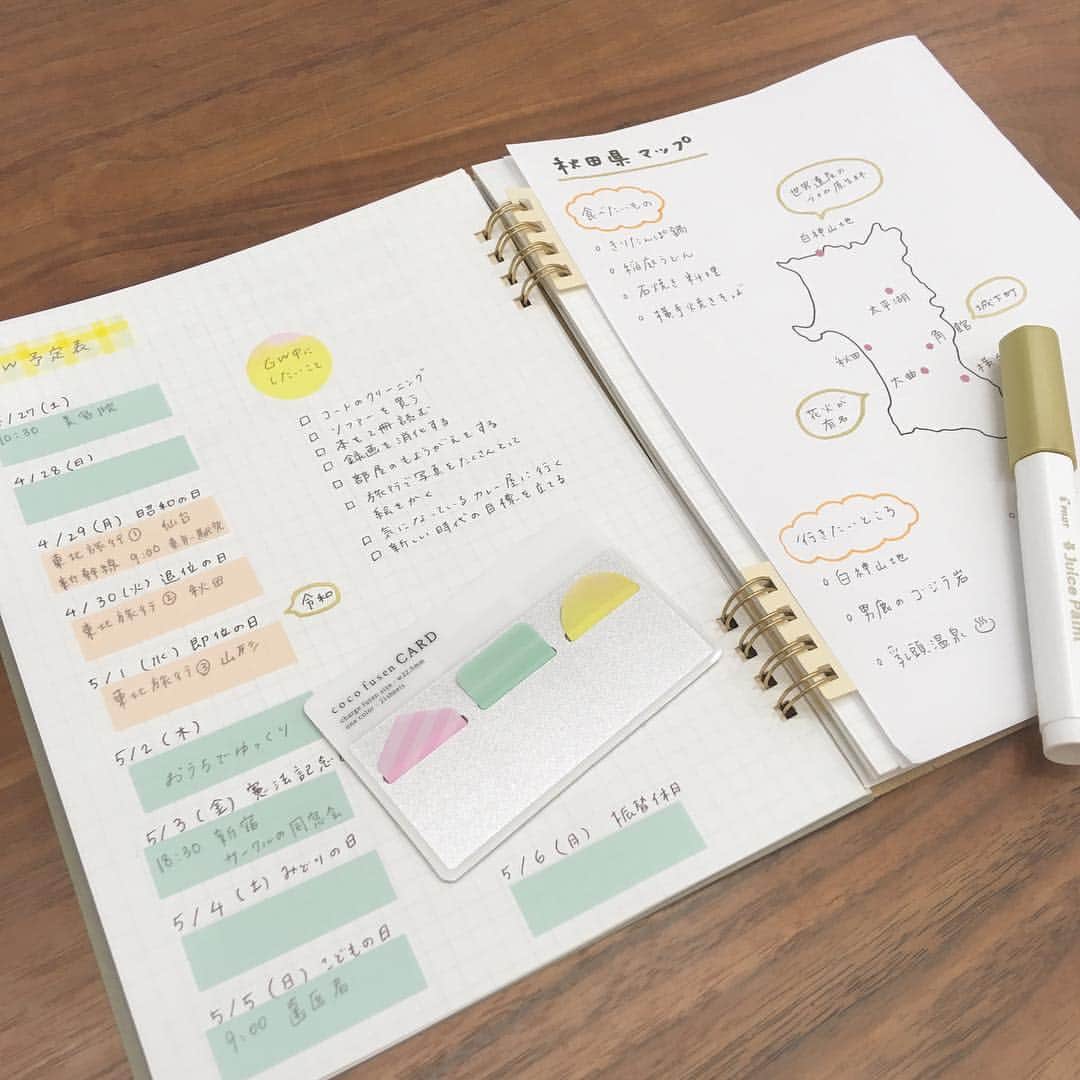 W 予定表
/27(土)
10:30 美容院
4/28(日)
4/29(月) 昭和の日
東北旅行① 仙台
新幹線 9:00
4/30(火) 退位の日
東北旅行② 秋田
令和
5/1(水) 即位の日
東北旅行③ 山形
5/2(木)
おうちでゆっくり
5/3(金) 憲法記念
18:30 新宿
サークルの同窓会
5/4(土) みどりの日
5/5(日) こどもの日
9:00 歯医者
5/6(月) 振替休日
GW中に
したいこと
□ コートのクリーニング
□ ソファーを買う
□ 本を2冊読む
□ 録画を消化する
□ 部屋のもようがえをする
□ 旅行で写真をたくさんとって
絵をかく
□ 気になっているカレー屋に行く
□ 新しい時代の目標を立てる
coco fusen CARD
charge fusen size : w22.5mm
one color : 21sheets
秋田県マップ
食べたいもの
○ きりたんぽ鍋
○ 稲庭うどん
○ 石焼き料理
○ 横手焼きそば
世界遺産の
ブナの原生林
白神山地
太平湖
城下町
角館
秋田
大曲
横
花火が
有名
行きたいところ
○ 白神山地
○ 男鹿のゴジラ岩
○ 乳頭温泉
PILOT
Juice Paint